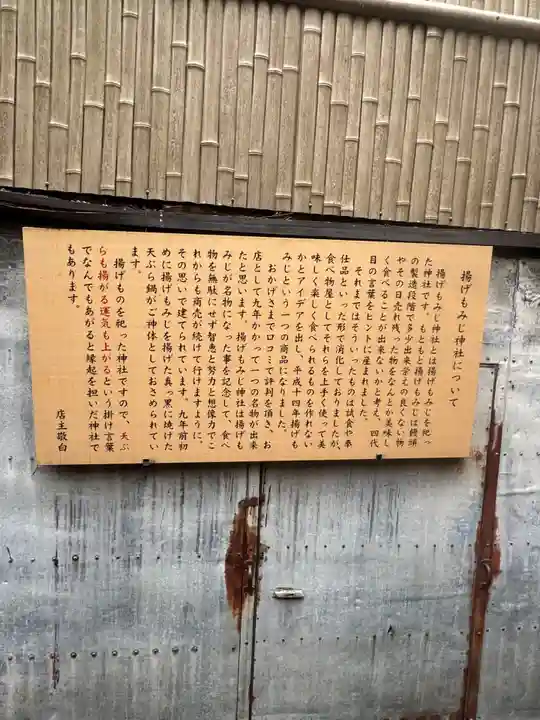 揚げもみじ神社について
揚げもみじ神社とは揚げもみじを祀っ
た神社です。もともと揚げもみじは饅頭
の製造段階で多少出来栄えの良くない物
やその日売れ残った物をなんとか美味し
く食べることが出来ないかと考え、四代
目の言葉をヒントに産まれました。
それまではそういったものは試食や奉
仕品といった形で消化しておりましたが、
食べ物屋としてそれらを上手く使って美
味しく楽しく食べられるものを作れない
かとアイデアを出し、平成十四年揚げも
みじという一つの商品になりました。
おかげさまで口コミで評判を頂き、お
店として九年かかって一つの名物が出来
たと思います。揚げもみじ神社は揚げも
みじが名物になった事を記念して、食べ
物を無駄にせず智恵と努力と想像力でこ
れからも商売が続けて行けますように、
その思いで建てられています。九年前初
めに揚げもみじを揚げた真っ黒に焼けた
天ぷら鍋がご神体としておさめられてい
ます。
揚げものを祀った神社ですので、天ぷ
らも揚がる運気も上がるという掛け言葉
でなんでもあがると縁起を担いだ神社で
もあります。
店主敬白